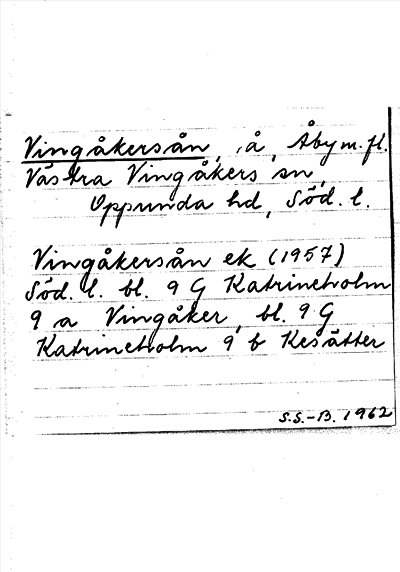 Vingåkersån, å, Åby m.fl.
Västra Vingåkers sn,
Oppunda hd, Söd. l.
Vingåkersån ek (1957)
Söd. l. bl. 9 G Katrineholm
9 a Vingåker, bl. 9 G
Katrineholm 9 b Kesätter
S.S.-B. 1962